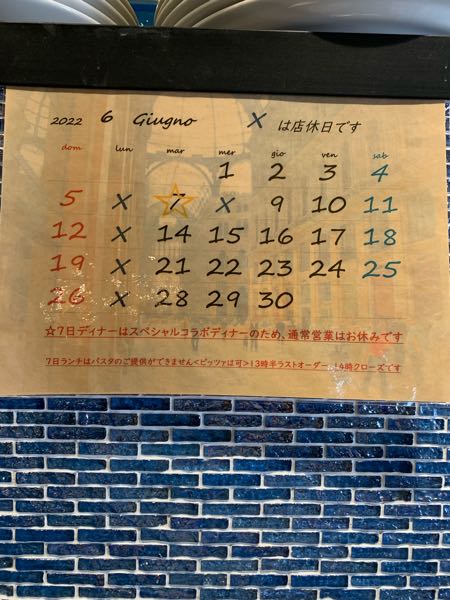 2022 6 Giugno X は店休日です
dom lun mar mer gio ven sab
1 2 3 4
5 X ☆7 X 9 10 11
12 X 14 15 16 17 18
19 X 21 22 23 24 25
26 X 28 29 30
☆7日ディナーはスペシャルコラボディナーのため、通常営業はお休みです
7日ランチはパスタのご提供ができません<ピッツァは可>13時半ラストオーダー、14時クローズです